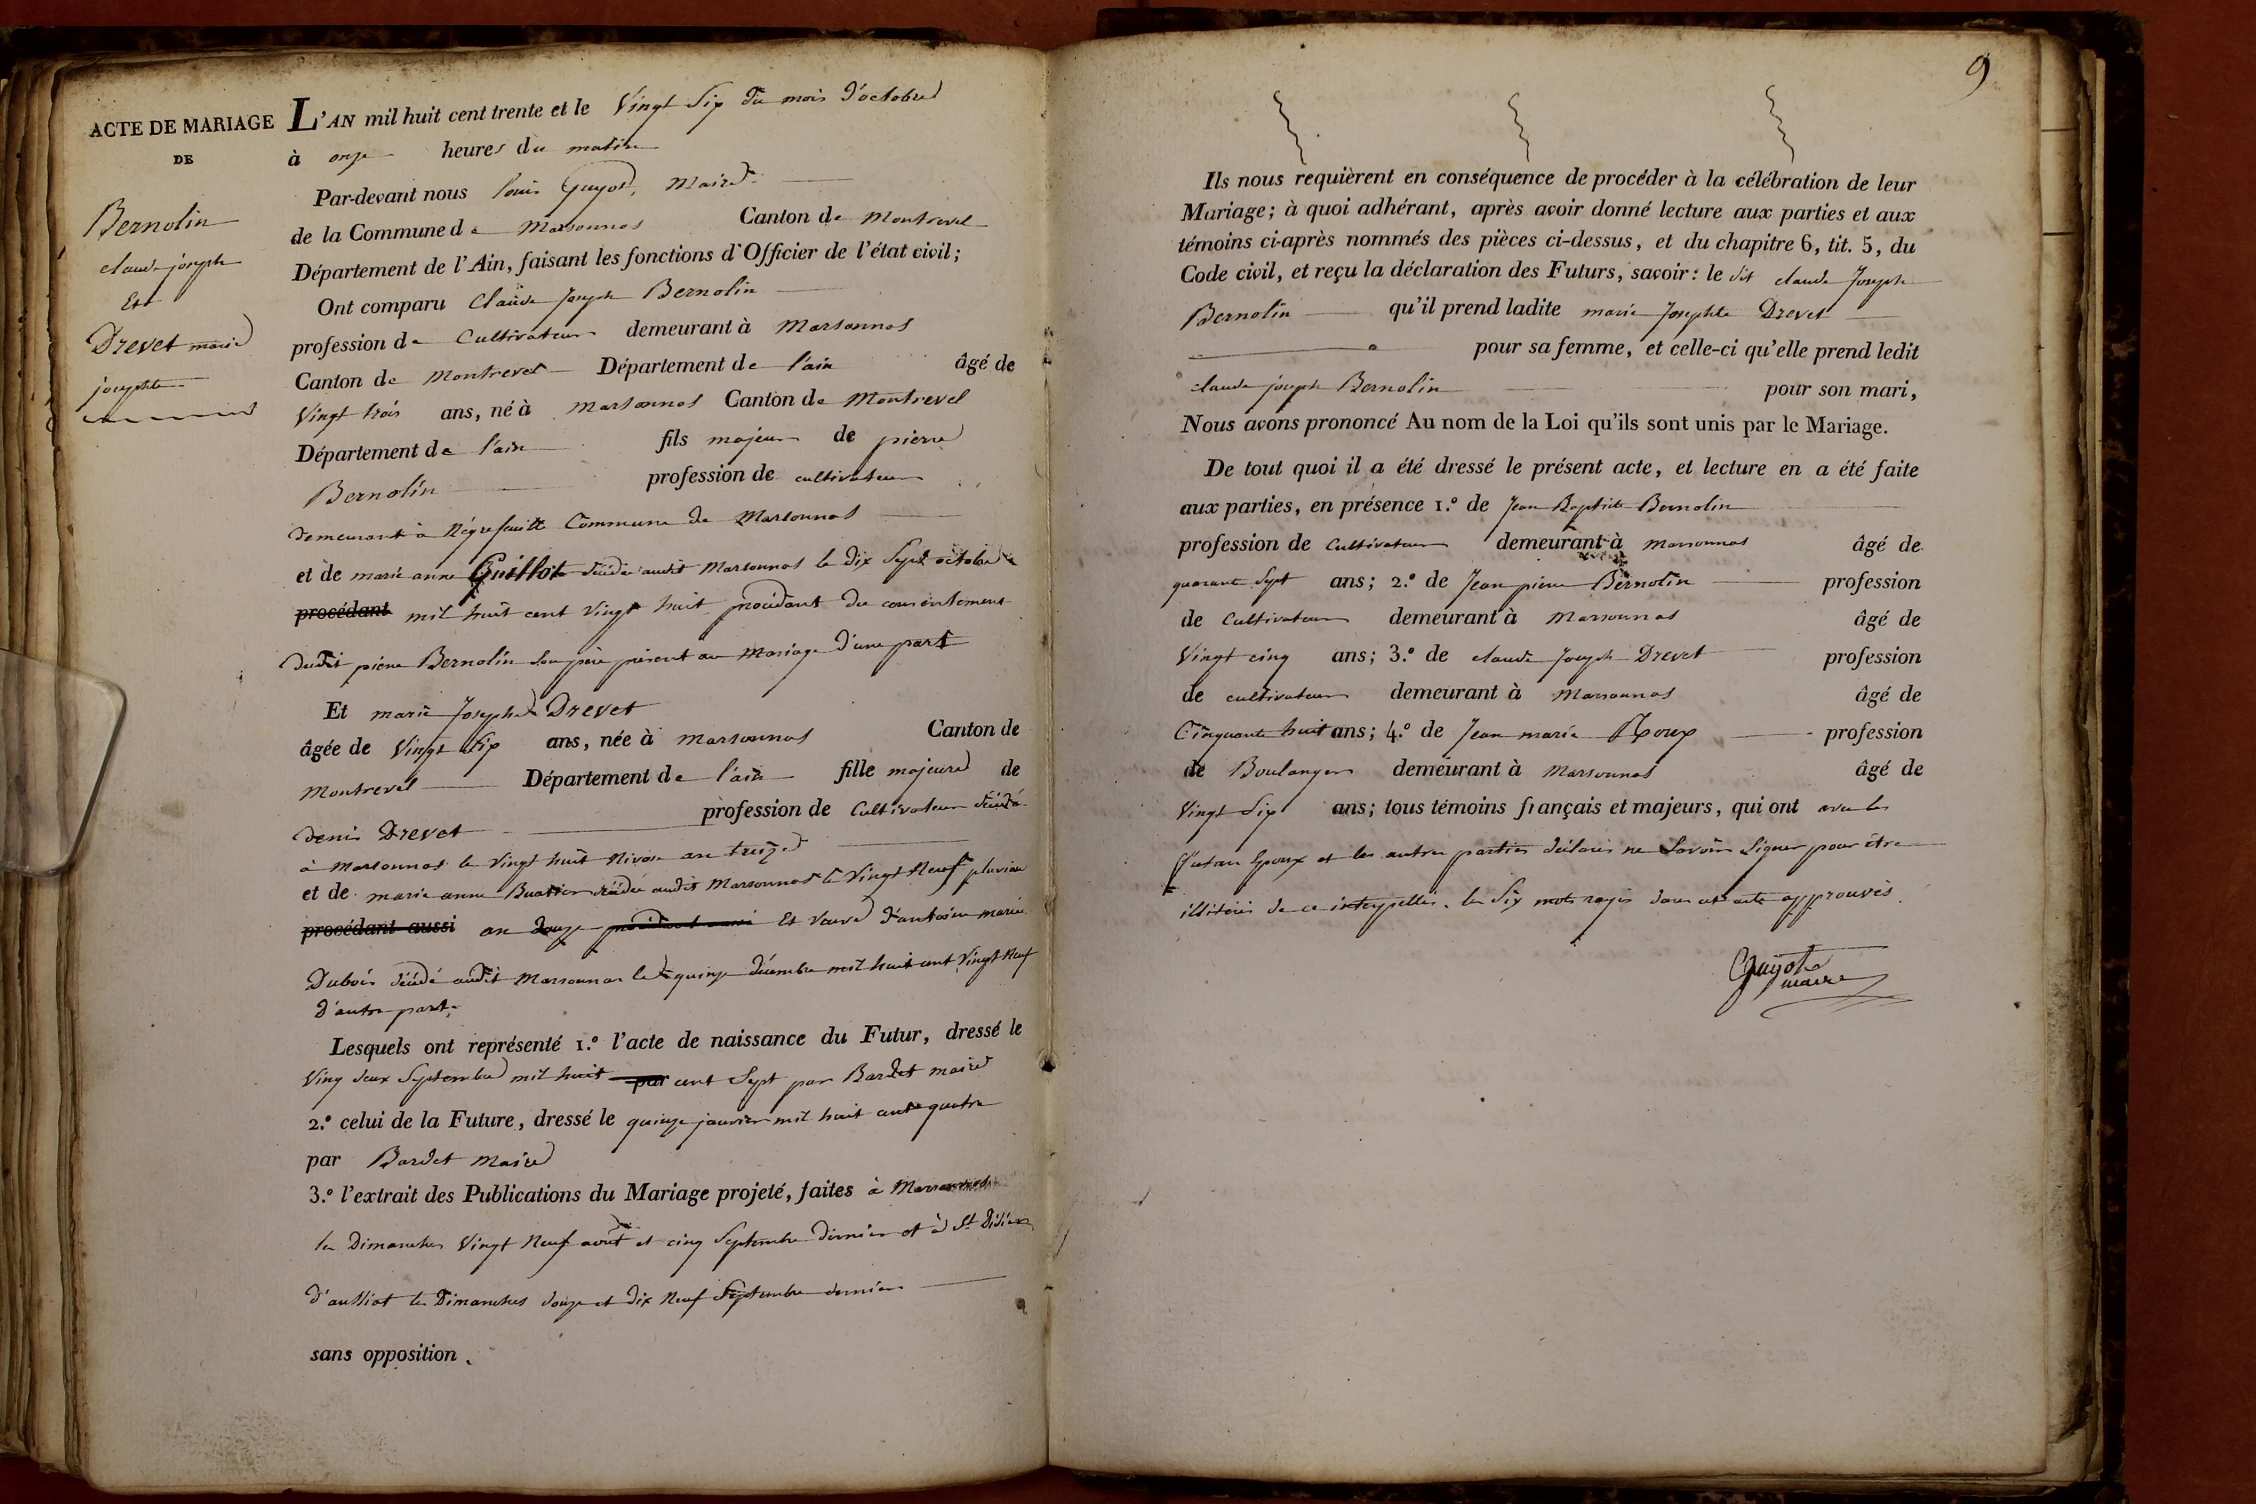 ACTE DE MARIAGE
DE
Bernolin
claude joseph
Et
Drevet marie
josephte
L'AN mil huit cent trente et le Vingt Six du mois d'octobre
à onze heures du matin
Par-devant nous louis Guyot, Maire
de la Commune de Marsonnas Canton de Montrevel
Département de l'Ain, faisant les fonctions d'Officier de l'état civil;
Ont comparu Claude Joseph Bernolin
profession de Cultivateur demeurant à Marsonnas
Canton de Montrevel Département de l'ain âgé de
Vingt trois ans, né à Marsonnas Canton de Montrevel
Département de l'ain fils majeur de pierre
Bernolin profession de cultivateur
demeurant à Commune de Marsonnas
et de marie anne Guillot décédée audit Marsonnas le dix Sept octobre
procédant mil huit cent Vingt huit procédant du consentement
dudit pierre Bernolin Son père présent au Mariage d'une part
Et marie Josephe Drevet
âgée de Vingt Six ans, née à Marsonnas Canton de
Montrevel Département de l'ain fille majeure de
denis Drevet profession de Cultivateur décédé
à Marsonnas le Vingt huit Nivose an treize
et de marie anne Buatier décédée audit Marsonnas le Vingt Neuf pluviose
procédant aussi an douze procédant aussi Et Veuve d'antoine marie
Dubois décédé audit Marsonnas le quinze décembre mil huit cent Vingt Neuf
d'autre part.
Lesquels ont représenté 1.º l'acte de naissance du Futur, dressé le
Ving deux Septembre mil huit par cent Sept par Bardet maire
2.º celui de la Future, dressé le quinze janvier mil huit cent quatre
par Bardet Maire
3.º l'extrait des Publications du Mariage projeté, faites à Marsonnas
les Dimanches Vingt Neuf août et cinq Septembre dernier et à St Didier
d'aussiat les Dimanches douze et dix Neuf Septembre dernier
sans opposition.
9
Ils nous requièrent en conséquence de procéder à la célébration de leur
Mariage; à quoi adhérant, après avoir donné lecture aux parties et aux
témoins ci-après nommés des pièces ci-dessus, et du chapitre 6, tit. 5, du
Code civil, et reçu la déclaration des Futurs, savoir: le dit claude Joseph
Bernolin qu'il prend ladite marie Josephte Drevet
pour sa femme, et celle-ci qu'elle prend ledit
claude joseph Bernolin pour son mari,
Nous avons prononcé Au nom de la Loi qu'ils sont unis par le Mariage.
De tout quoi il a été dressé le présent acte, et lecture en a été faite
aux parties, en présence 1.º de Jean Baptiste Bernolin
profession de Cultivateur demeurant à Marsonnas âgé de
quarante Sept ans; 2.º de Jean pierre Bernolin profession
de Cultivateur demeurant à Marsonnas âgé de
Vingt cinq ans; 3.º de claude Joseph Drevet profession
de cultivateur demeurant à Marsonnas âgé de
Cinquante huit ans; 4.º de Jean marie Roux profession
de Boulanger demeurant à Marsonnas âgé de
Vingt Six ans; tous témoins français et majeurs, qui ont avec les
futurs Epoux et les autres parties déclaré ne Savoir Signer pour être
illitérés de ce interpellés. les Six mots rayés dans cet acte approuvés.
Guyot
maire